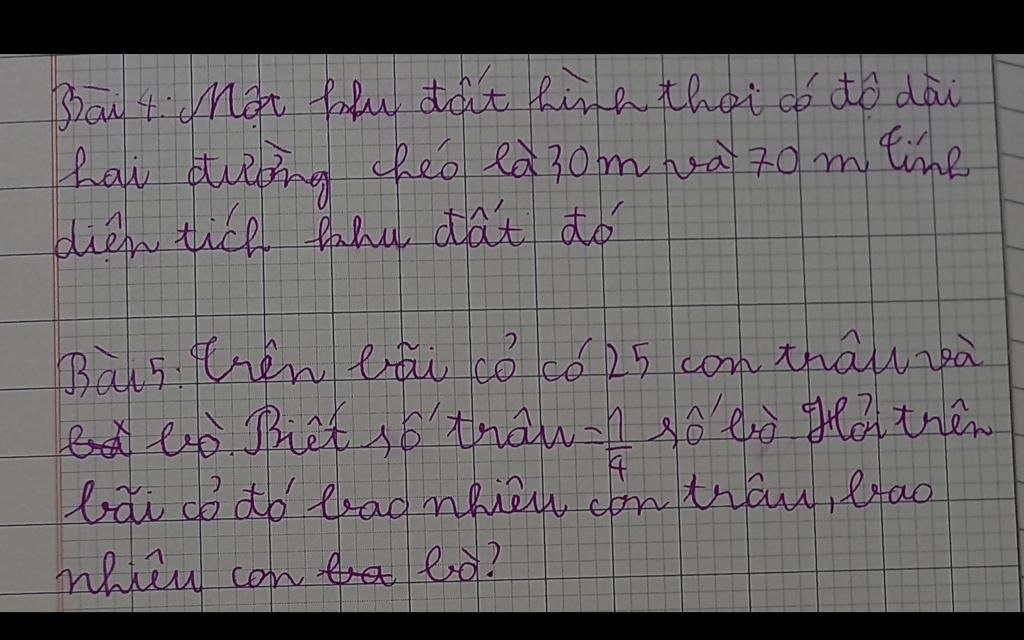 Bài 4: Một khu đất hình thoi có độ dài
hai đường chéo là 30 m và 70 m Tính
diện tích khu đất đó
Bài 5: Trên bãi cỏ có 25 con trâu và
bò. Biết số trâu = 1/4 số bò Hỏi trên
bãi cỏ đó bao nhiêu con trâu, bao
nhiêu con bò?